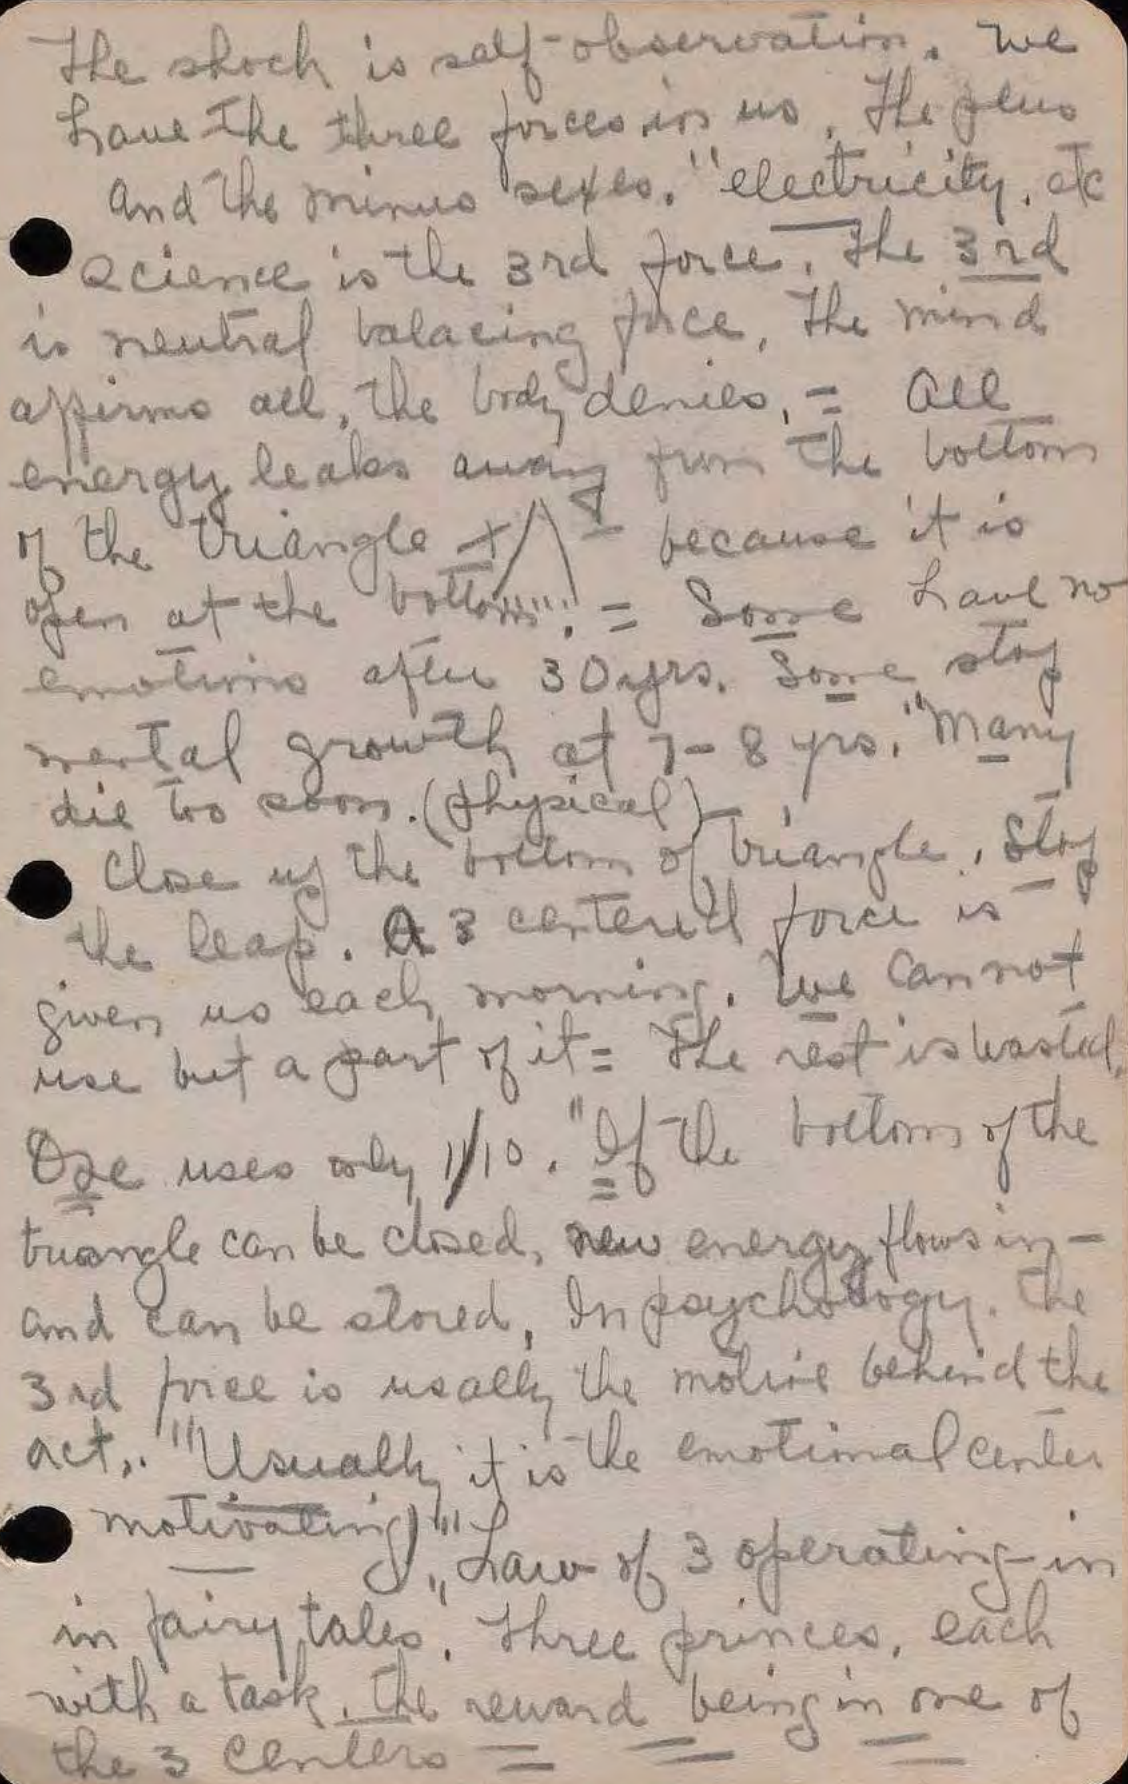 The shock is self-observation. We
have the three forces in us. The plus
and the minus sexes. "electricity, etc
Science is the 3rd force. The 3rd
is neutral balacing force. The mind
affirms all, the body denies. = All
energy leaks away from the bottom
of the triangle + - because it is
open at the bottom. = Some have no
emotions after 30 yrs. Some stop
mental growth at 7-8 yrs. "Many
die too soon. (physical) -
Close up the bottom of triangle. Stop
the leap. A 3 centered force is
given us each morning. We cannot
use but a part of it = The rest is wasted.
One uses only 1/10. "If the bottom of the
triangle can be closed, new energy flows in -
and can be stored. In psychology. The
3rd force is usually the motive behind the
act. "Usually it is the emotional center
motivating)." "Law of 3 operating in
in fairy tales. Three princes, each
with a task, the reward being in one of
the 3 centers =